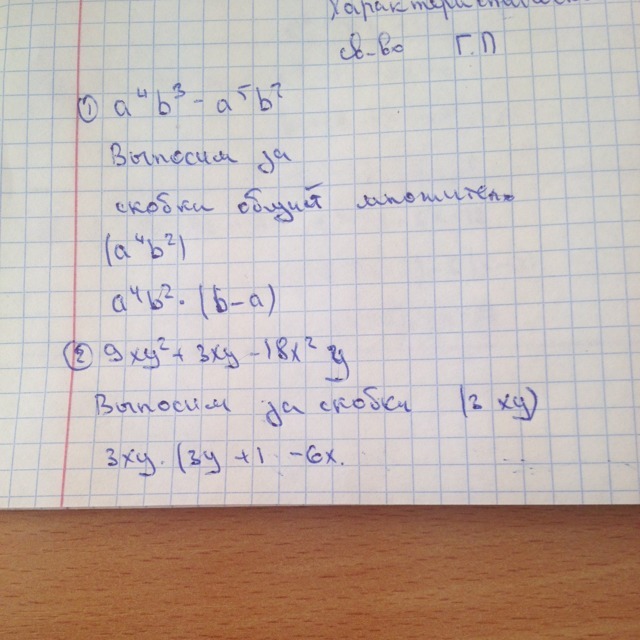 св-во Г.П
① a⁴b³ - a⁵b²
Выносим за
скобки общий множитель
(a⁴b²)
a⁴b² · (b-a)
② 9xy² + 3xy - 18x² y
Выносим за скобки (3 xy)
3xy · (3y +1 -6x.